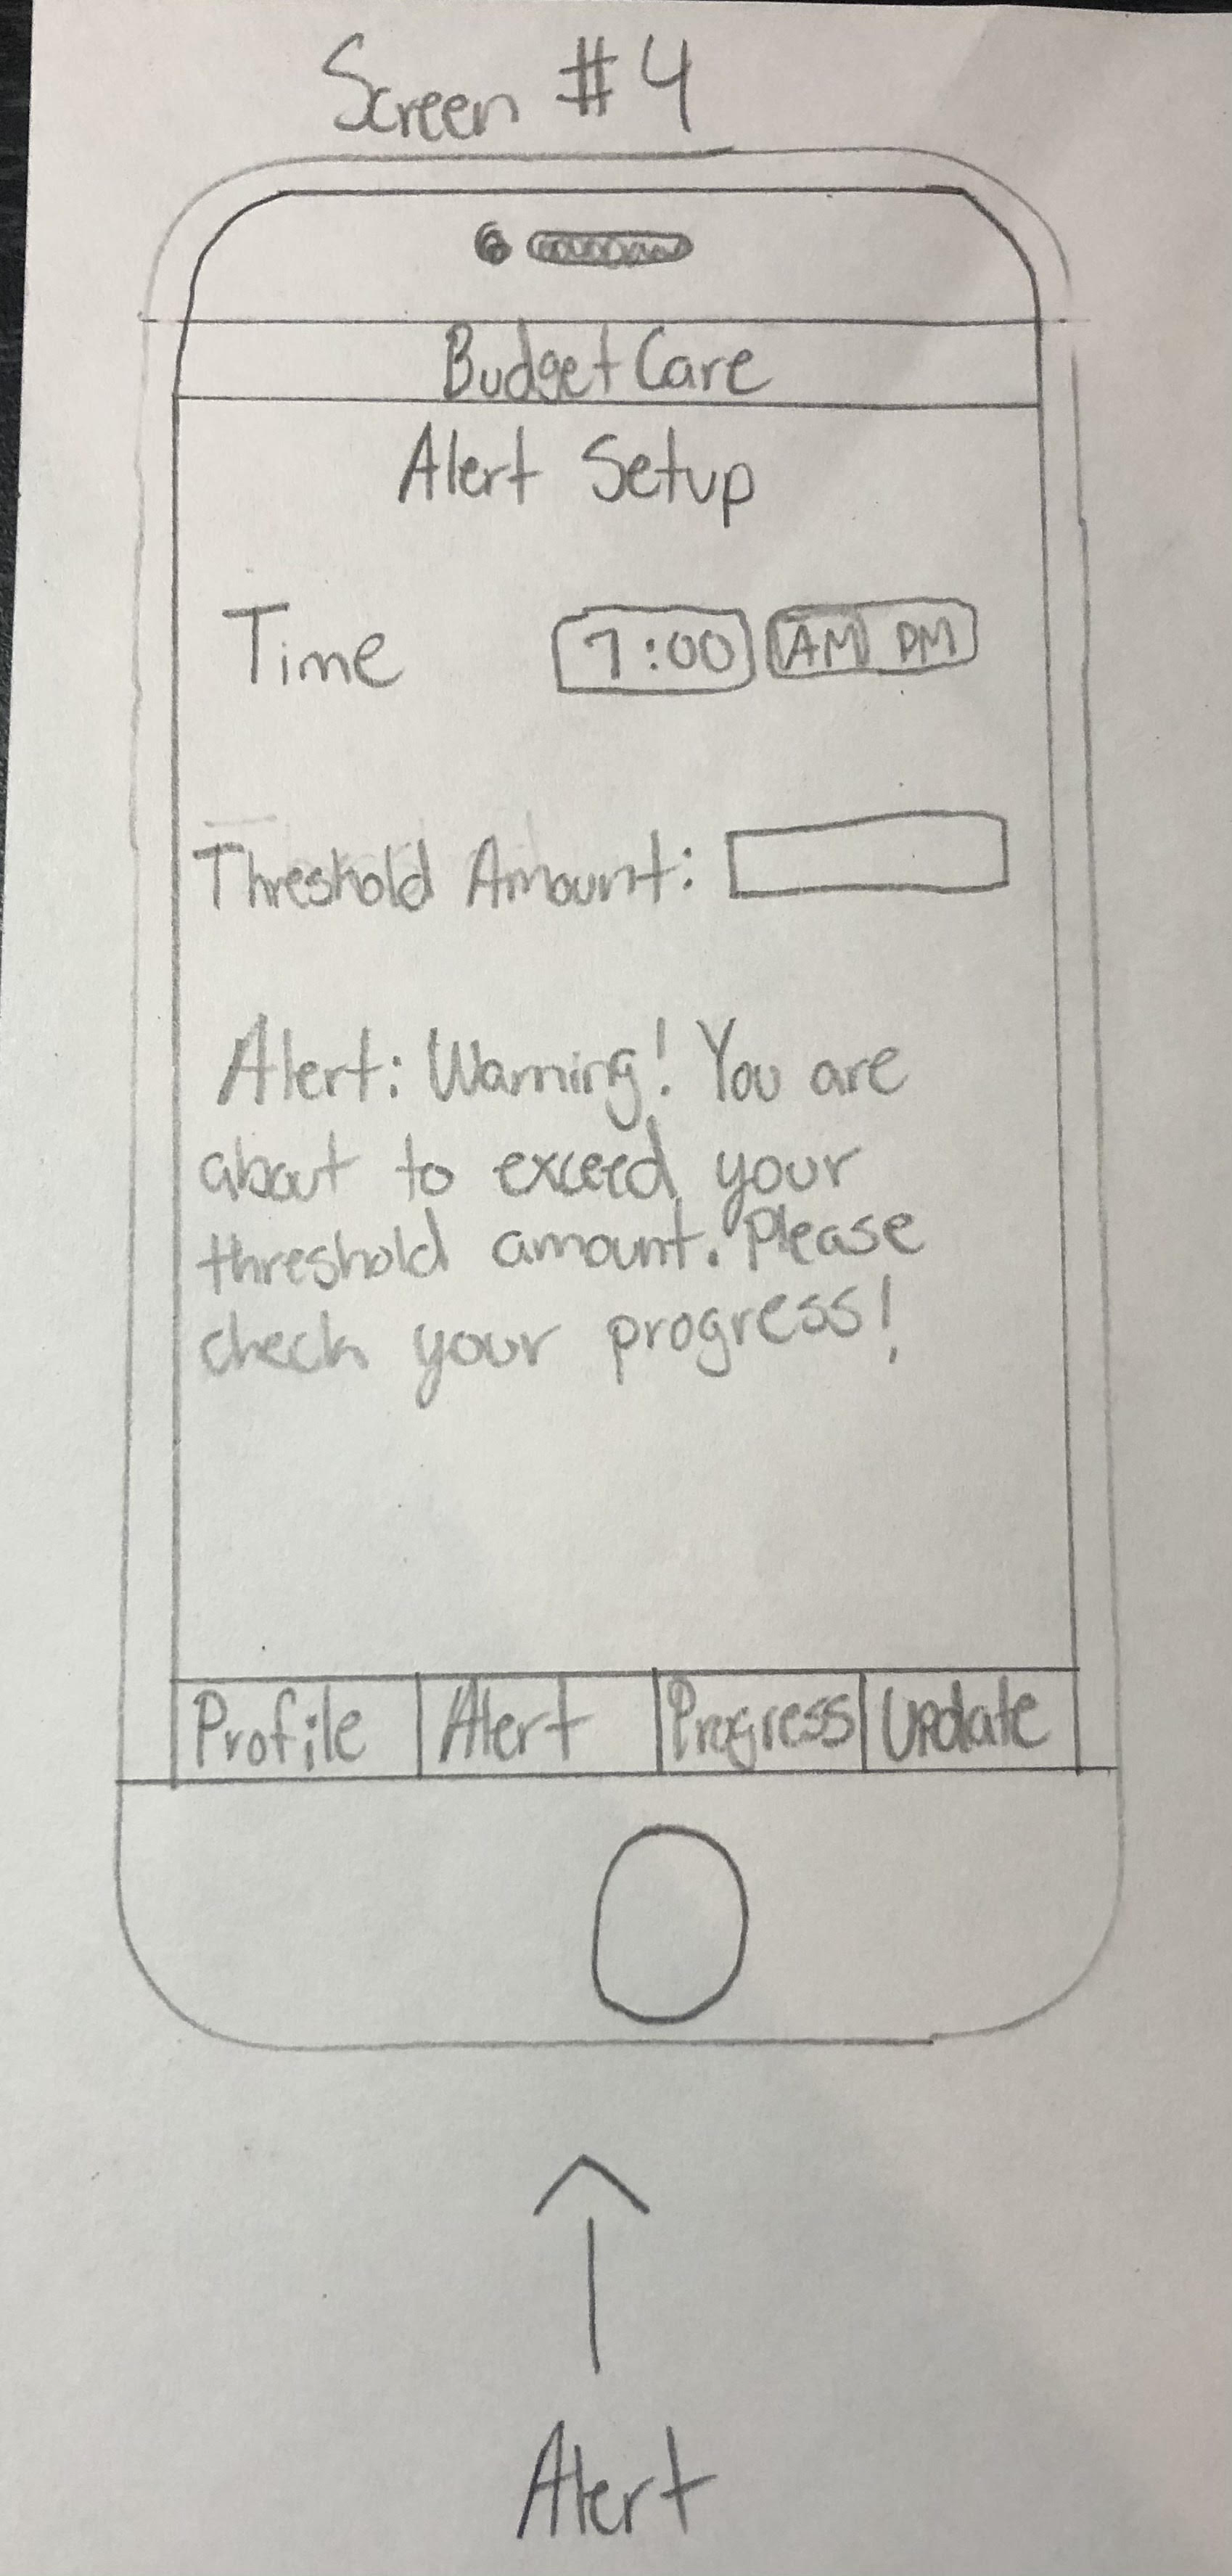 Screen #4
Budget Care
Alert Setup
Time 7:00 AM PM
Threshold Amount:
Alert: Warning! You are
about to exceed your
threshold amount. Please
check your progress!
Profile Alert Progress Update
Alert